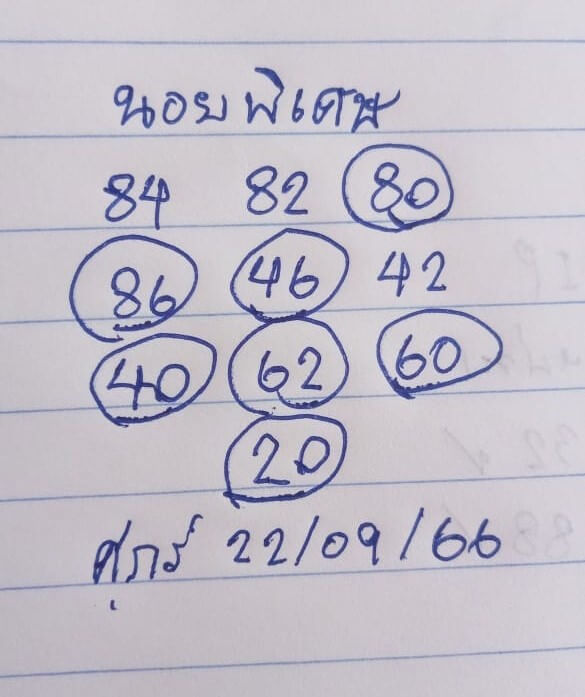 นอยพิเศษ
84 82 80
86 46 42
40 62 60
20
ศุกร์ 22/09/66